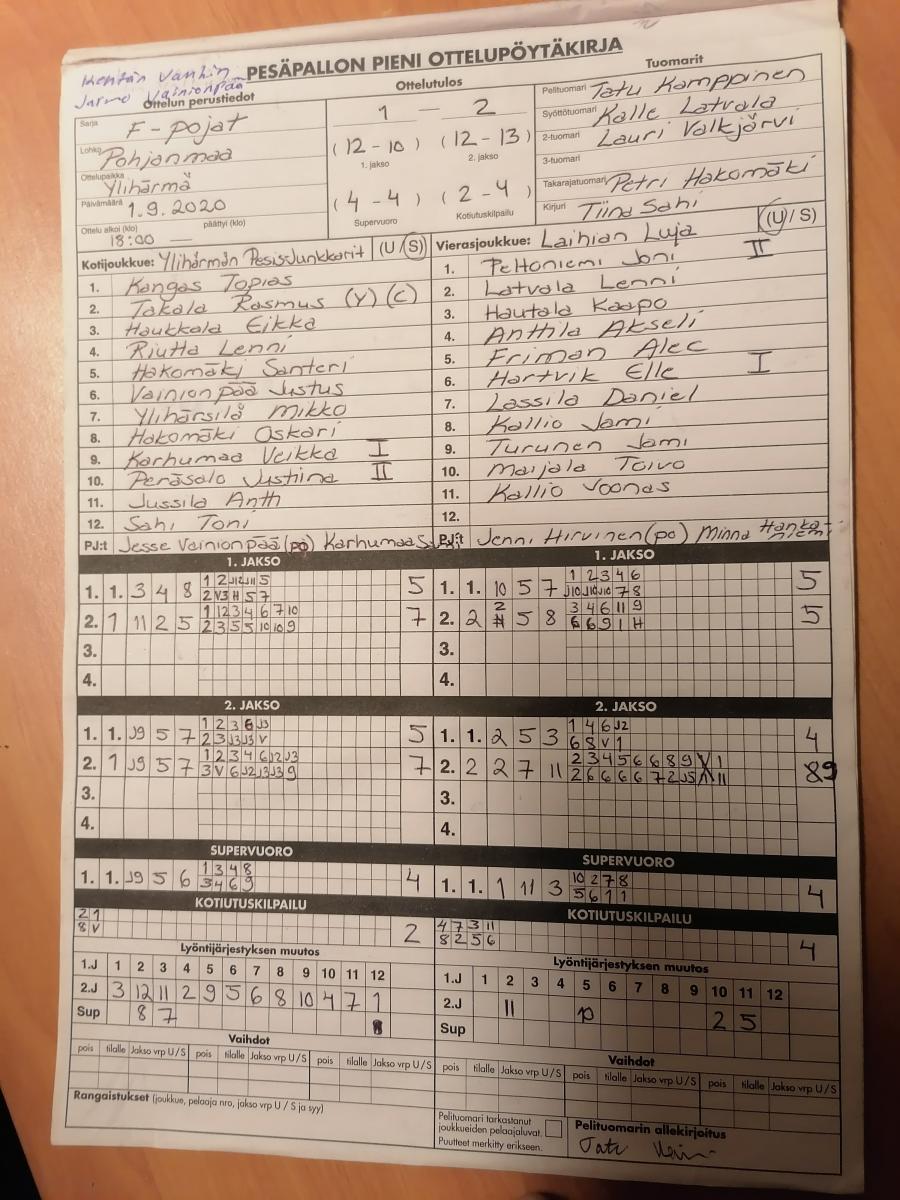 Kentän vanhin
Jarmo Vainionpää
PESÄPALLON PIENI OTTELUPÖYTÄKIRJA
Ottelun perustiedot
Sarja F-pojat
Lohko Pohjanmaa
Ottelupaikka Ylihärmä
Päivämäärä 1.9.2020
Ottelu alkoi (klo) päättyi (klo)
18:00 —
Ottelutulos
1 — 2
(12-10) (12-13)
1. jakso 2. jakso
(4-4) (2-4)
Supervuoro Kotiutuskilpailu
Tuomarit
Pelituomari Tatu Kamppinen
Syöttötuomari Kalle Latvala
2-tuomari Lauri Valkjärvi
3-tuomari
Takarajatuomari Petri Hakomäki
Kirjuri Tiina Sahi
Kotijoukkue: Ylihärmän PesisJunkkarit (U/S)
1. Kangas Topias
2. Takala Rasmus (Y) (C)
3. Haukkala Eikka
4. Riutta Lenni
5. Hakomäki Santeri
6. Vainionpää Justus
7. Ylihärsilä Mikko
8. Hakomäki Oskari
9. Karhumaa Veikka I
10. Peräsalo Justiina II
11. Jussila Antti
12. Sahi Toni
PJ:t Jesse Vainionpää (po) Karhumaa
Vierasjoukkue: Laihian Luja (U/S)
1. Peltoniemi Joni II
2. Latvala Lenni
3. Hautala Kaapo
4. Anttila Akseli
5. Friman Alec
6. Hartvik Elle I
7. Lassila Daniel
8. Kallio Jami
9. Turunen Jami
10. Maijala Toivo
11. Kallio Joonas
12.
PJ:t Jenni Hirvinen (po) Minna Hankaniemi
1. JAKSO
1. 1. 3 4 8 1 2 J12 J11 5 5
2 V 3 H 5 7
2. 1 11 2 5 1 1 2 3 4 6 7 10 7
2 3 5 5 10 10 9
3.
4.
1. JAKSO
1. 1. 10 5 7 1 2 3 4 6 5
J10 J10 J10 7 8
2. 2 2 5 8 3 4 6 11 9 5
6 6 9 1 H
3.
4.
2. JAKSO
1. 1. J9 5 7 1 2 3 6 J3 5
2 3 J3 J3 V
2. 1 J9 5 7 1 2 3 4 6 J2 J3 7
3 V 6 J2 J3 J3 9
3.
4.
2. JAKSO
1. 1. 2 5 3 1 4 6 J2 4
6 8 V 1
2. 2 2 7 11 2 3 4 5 6 6 8 9 1 9
2 6 6 6 6 7 2 J5 11
3.
4.
SUPERVUORO
1. 1. J9 5 6 1 3 4 8 4
3 4 6 9
SUPERVUORO
1. 1. 1 11 3 10 2 7 8 4
5 6 1 1
KOTIUTUSKILPAILU
2 1 2
8 V
KOTIUTUSKILPAILU
4 7 3 11 4
8 2 5 6
Lyöntijärjestyksen muutos
1.J 1 2 3 4 5 6 7 8 9 10 11 12
2.J 3 12 11 2 9 5 6 8 10 4 7 1
Sup 8 7
Lyöntijärjestyksen muutos
1.J 1 2 3 4 5 6 7 8 9 10 11 12
2.J 11 10 2 5
Sup
Vaihdot
pois tilalle Jakso vrp U/S pois tilalle Jakso vrp U/S pois tilalle Jakso vrp U/S
Vaihdot
pois tilalle Jakso vrp U/S pois tilalle Jakso vrp U/S pois tilalle Jakso vrp U/S
Rangaistukset (joukkue, pelaaja nro, jakso vrp U / S ja syy)
Pelituomari tarkastanut
joukkueiden pelaajaluvat.
Puutteet merkitty erikseen.
Pelituomarin allekirjoitus